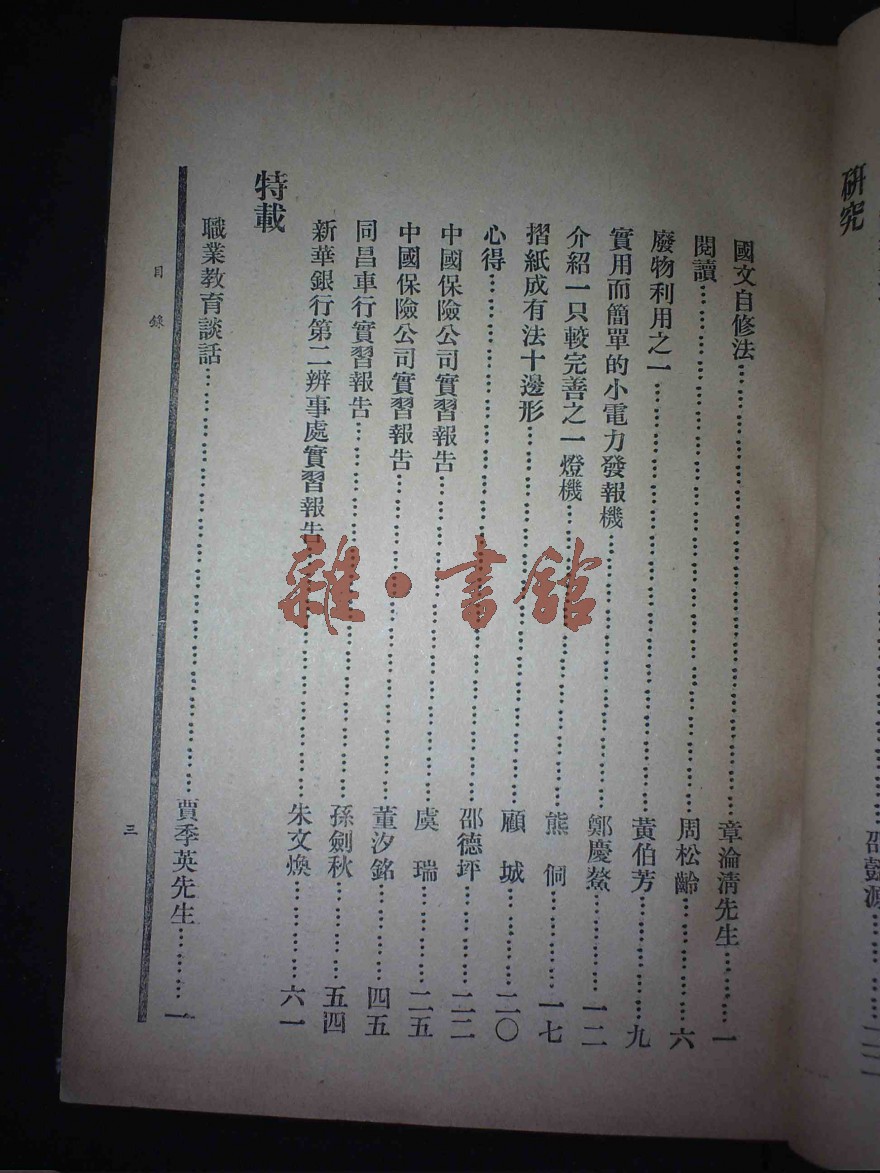 研究
國文自修法……章淪清先生……一
閱讀……周松齡……六
廢物利用之一……黃伯芳……九
實用而簡單的小電力發報機……鄭慶鰲……一二
介紹一只較完善之一燈機……熊侗……一七
摺紙成有法十邊形……顧城……二〇
心得……邵德坪……二二
中國保險公司實習報告……虞瑞……二五
中國保險公司實習報告……董汐銘……四五
同昌車行實習報告……孫劍秋……五四
新華銀行第二辨事處實習報告……朱文煥……六一
特載
職業教育談話……賈季英先生……一
目錄
三
雜·書館